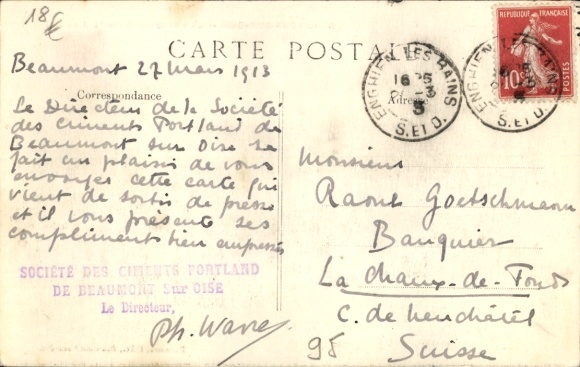 18€
CARTE POSTALE
RÉPUBLIQUE FRANÇAISE
10c
POSTES
ENGHIEN LES BAINS
S. ET O.
ENGHIEN LES BAINS
S. ET O.
Beaumont 27 Mars 1913
Correspondance
Adresse
Le Directeur de la Société
des ciments Portland de
Beaumont sur Oise se
fait un plaisir de vous
envoyer cette carte qui
vient de sortir de presse
et il vous présente ses
compliments bien empressés
SOCIÉTÉ DES CIMENTS PORTLAND
DE BEAUMONT Sur OISE
Le Directeur,
Monsieur
Raoul Goetschmann
Banquier
La Chaux-de-Fonds
C. de Neuchâtel
Suisse